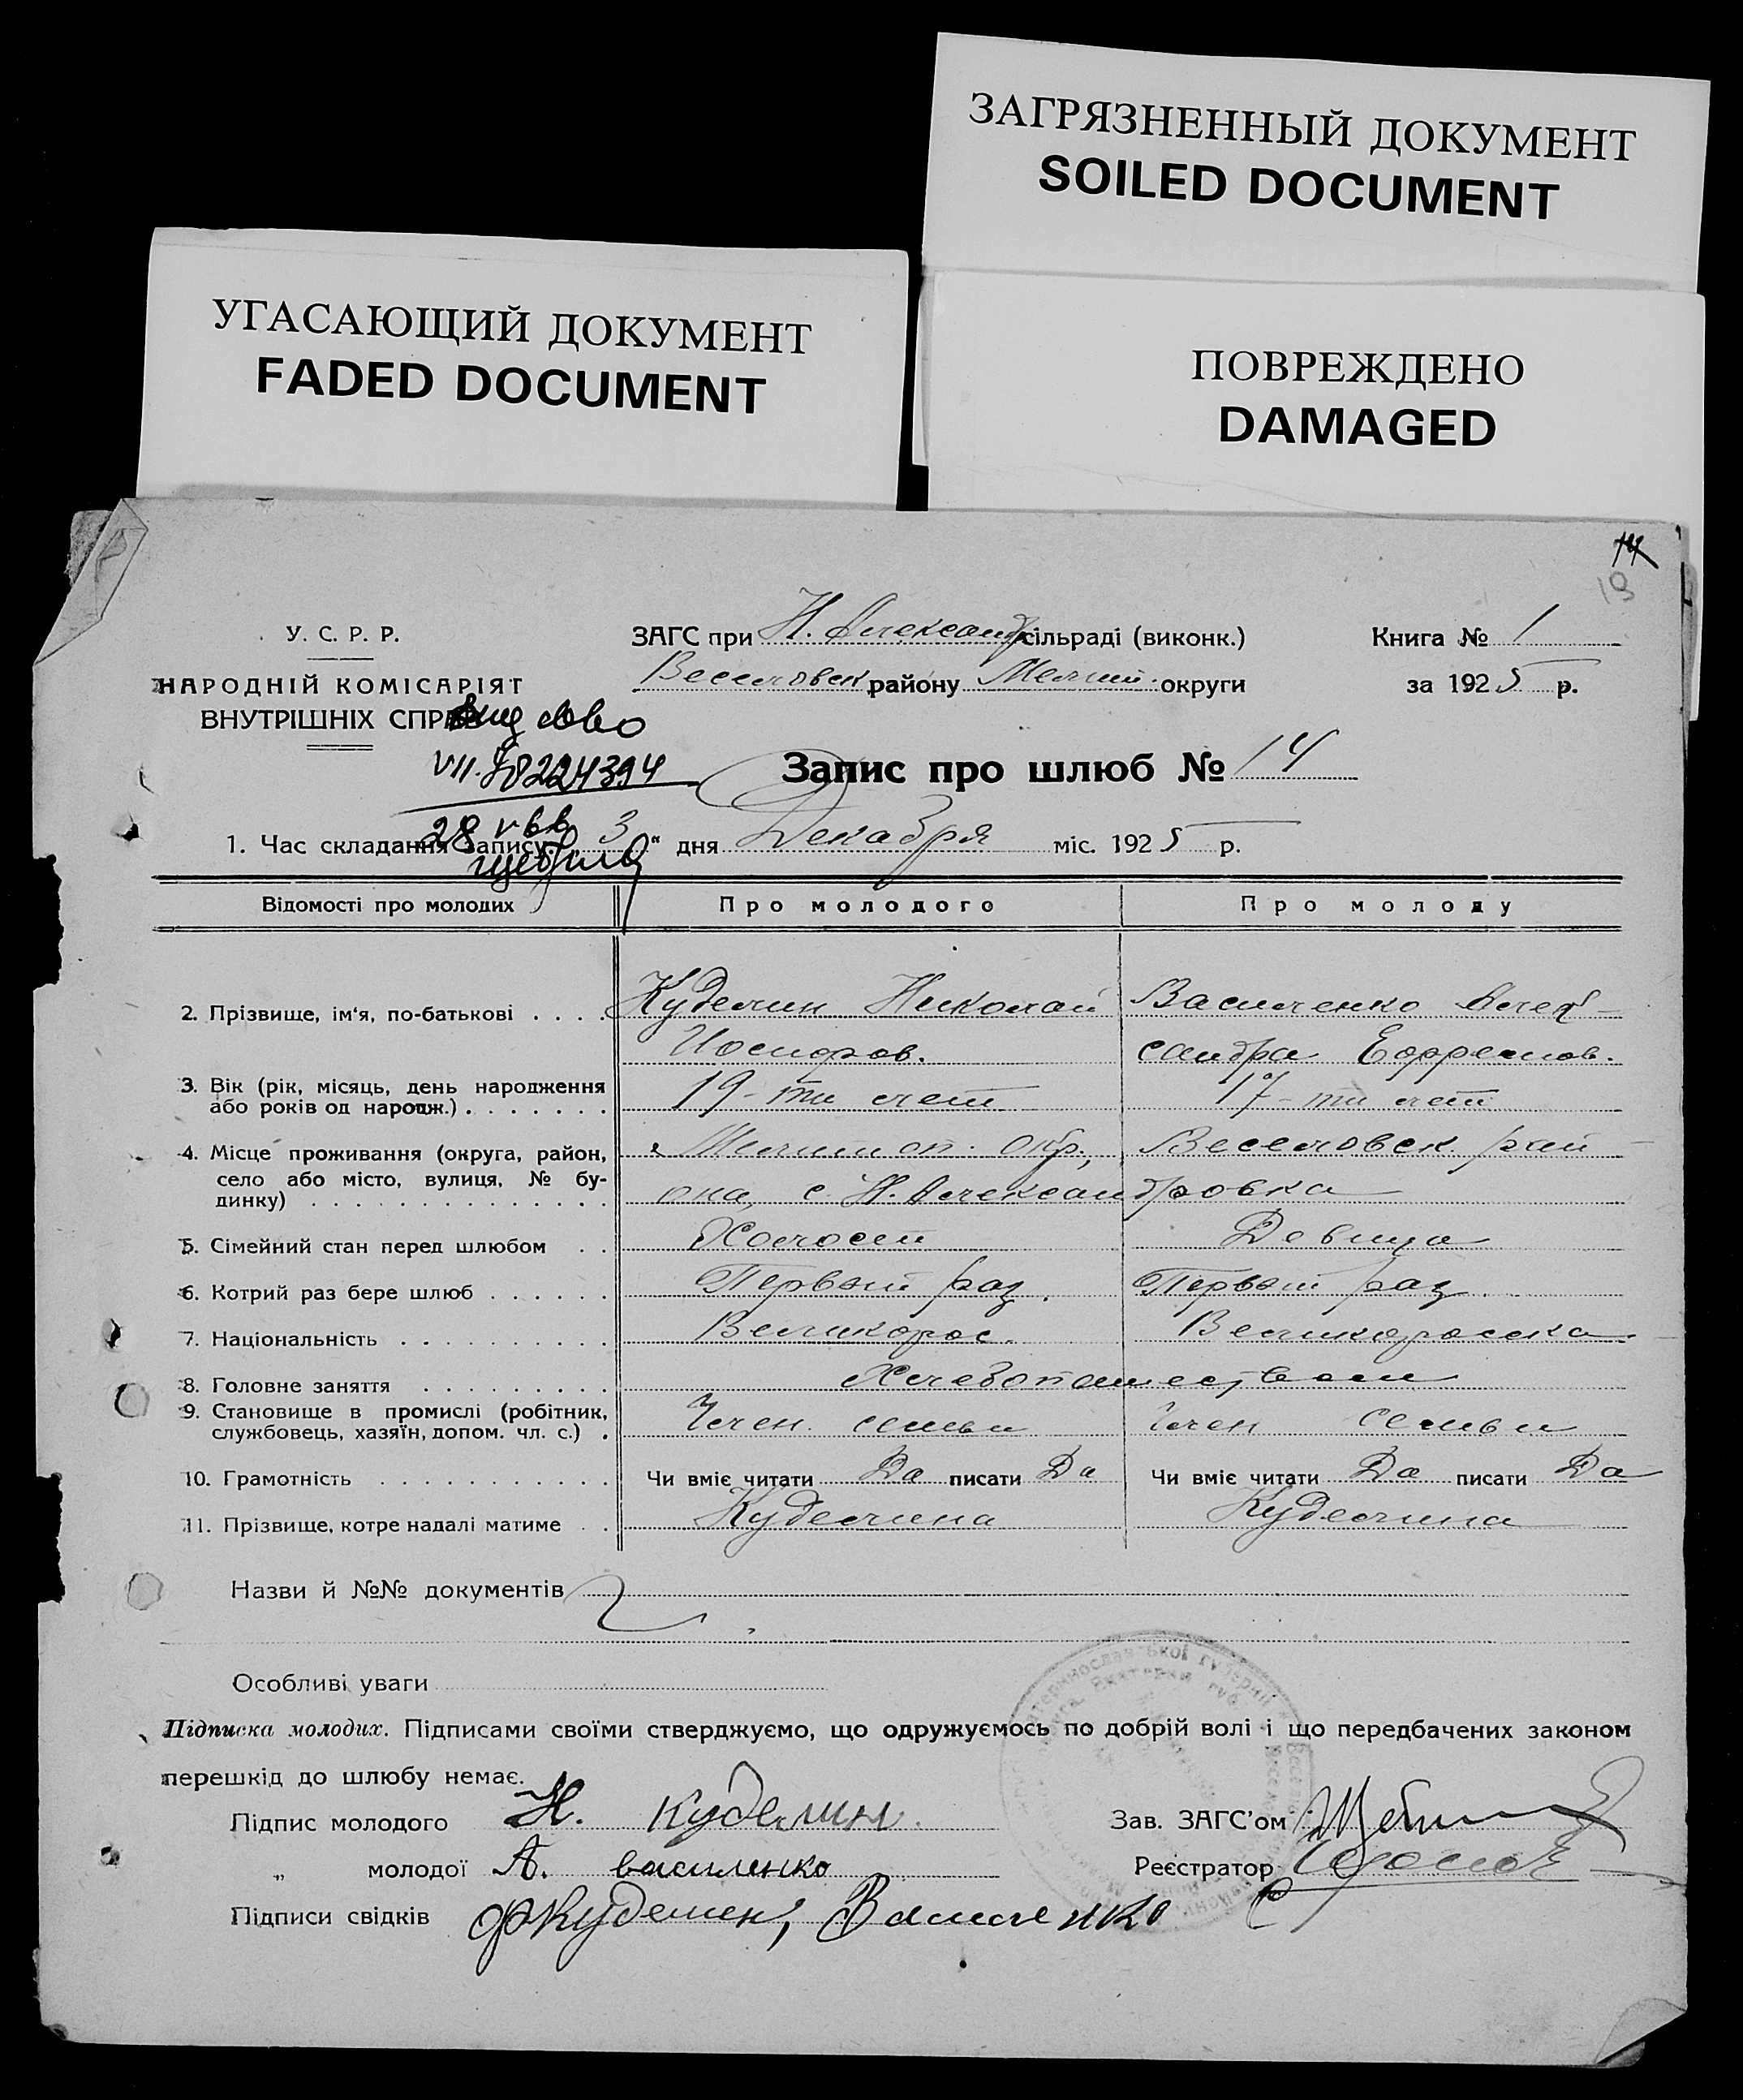 ЗАГРЯЗНЕННЫЙ ДОКУМЕНТ
SOILED DOCUMENT
УГАСАЮЩИЙ ДОКУМЕНТ
FADED DOCUMENT
ПОВРЕЖДЕНО
DAMAGED
14
19
У. С. Р. Р.
НАРОДНІЙ КОМІСАРІЯТ
ВНУТРІШНІХ СПРАВ
ЗАГС при Н. Александр сільраді (виконк.)
Веселовск району Мелит. округи
Книга № 1
за 1925 р.
VII. 224394
28
Запис про шлюб № 14
1. Час складання запису: „ 3 “ дня Декабря міс. 1925 р.
Відомості про молодих Про молодого Про молоду
2. Прізвище, ім'я, по-батькові . . . . Куделин Николай Василенко Алек-
Иосифов. сандра Ефремов.
3. Вік (рік, місяць, день народження
або років од народж.) . . . . . . . 19-ти лет 17-ти лет
4. Місце проживання (округа, район, Мелитоп. окр., Веселовск. рай-
село або місто, вулиця, № бу-
динку) . . . . . . . . . . . . . . она, с. Н. Александровка
5. Сімейний стан перед шлюбом . . Холост Девица
6. Котрий раз бере шлюб . . . . . . Первый раз. Первый раз.
7. Національність . . . . . . . . . . Великорос. Великоросска.
8. Головне заняття . . . . . . . . . Хлебопашеством
9. Становище в промислі (робітник,
службовець, хазяїн, допом. чл. с.) . Член. семьи Член семьи
10. Грамотність . . . . . . . . . . . Чи вміє читати Да писати Да Чи вміє читати Да писати Да
11. Прізвище, котре надалі матиме . . Куделина Куделина
Назви й №№ документів
Особливі уваги
Підписка молодих. Підписами своїми стверджуємо, що одружуємось по добрій волі і що передбачених законом
перешкід до шлюбу немає.
Підпис молодого Н. Куделин. Зав. ЗАГС'ом
„ молодої А. василенко Реєстратор
Підписи свідків Куделин, Василенко